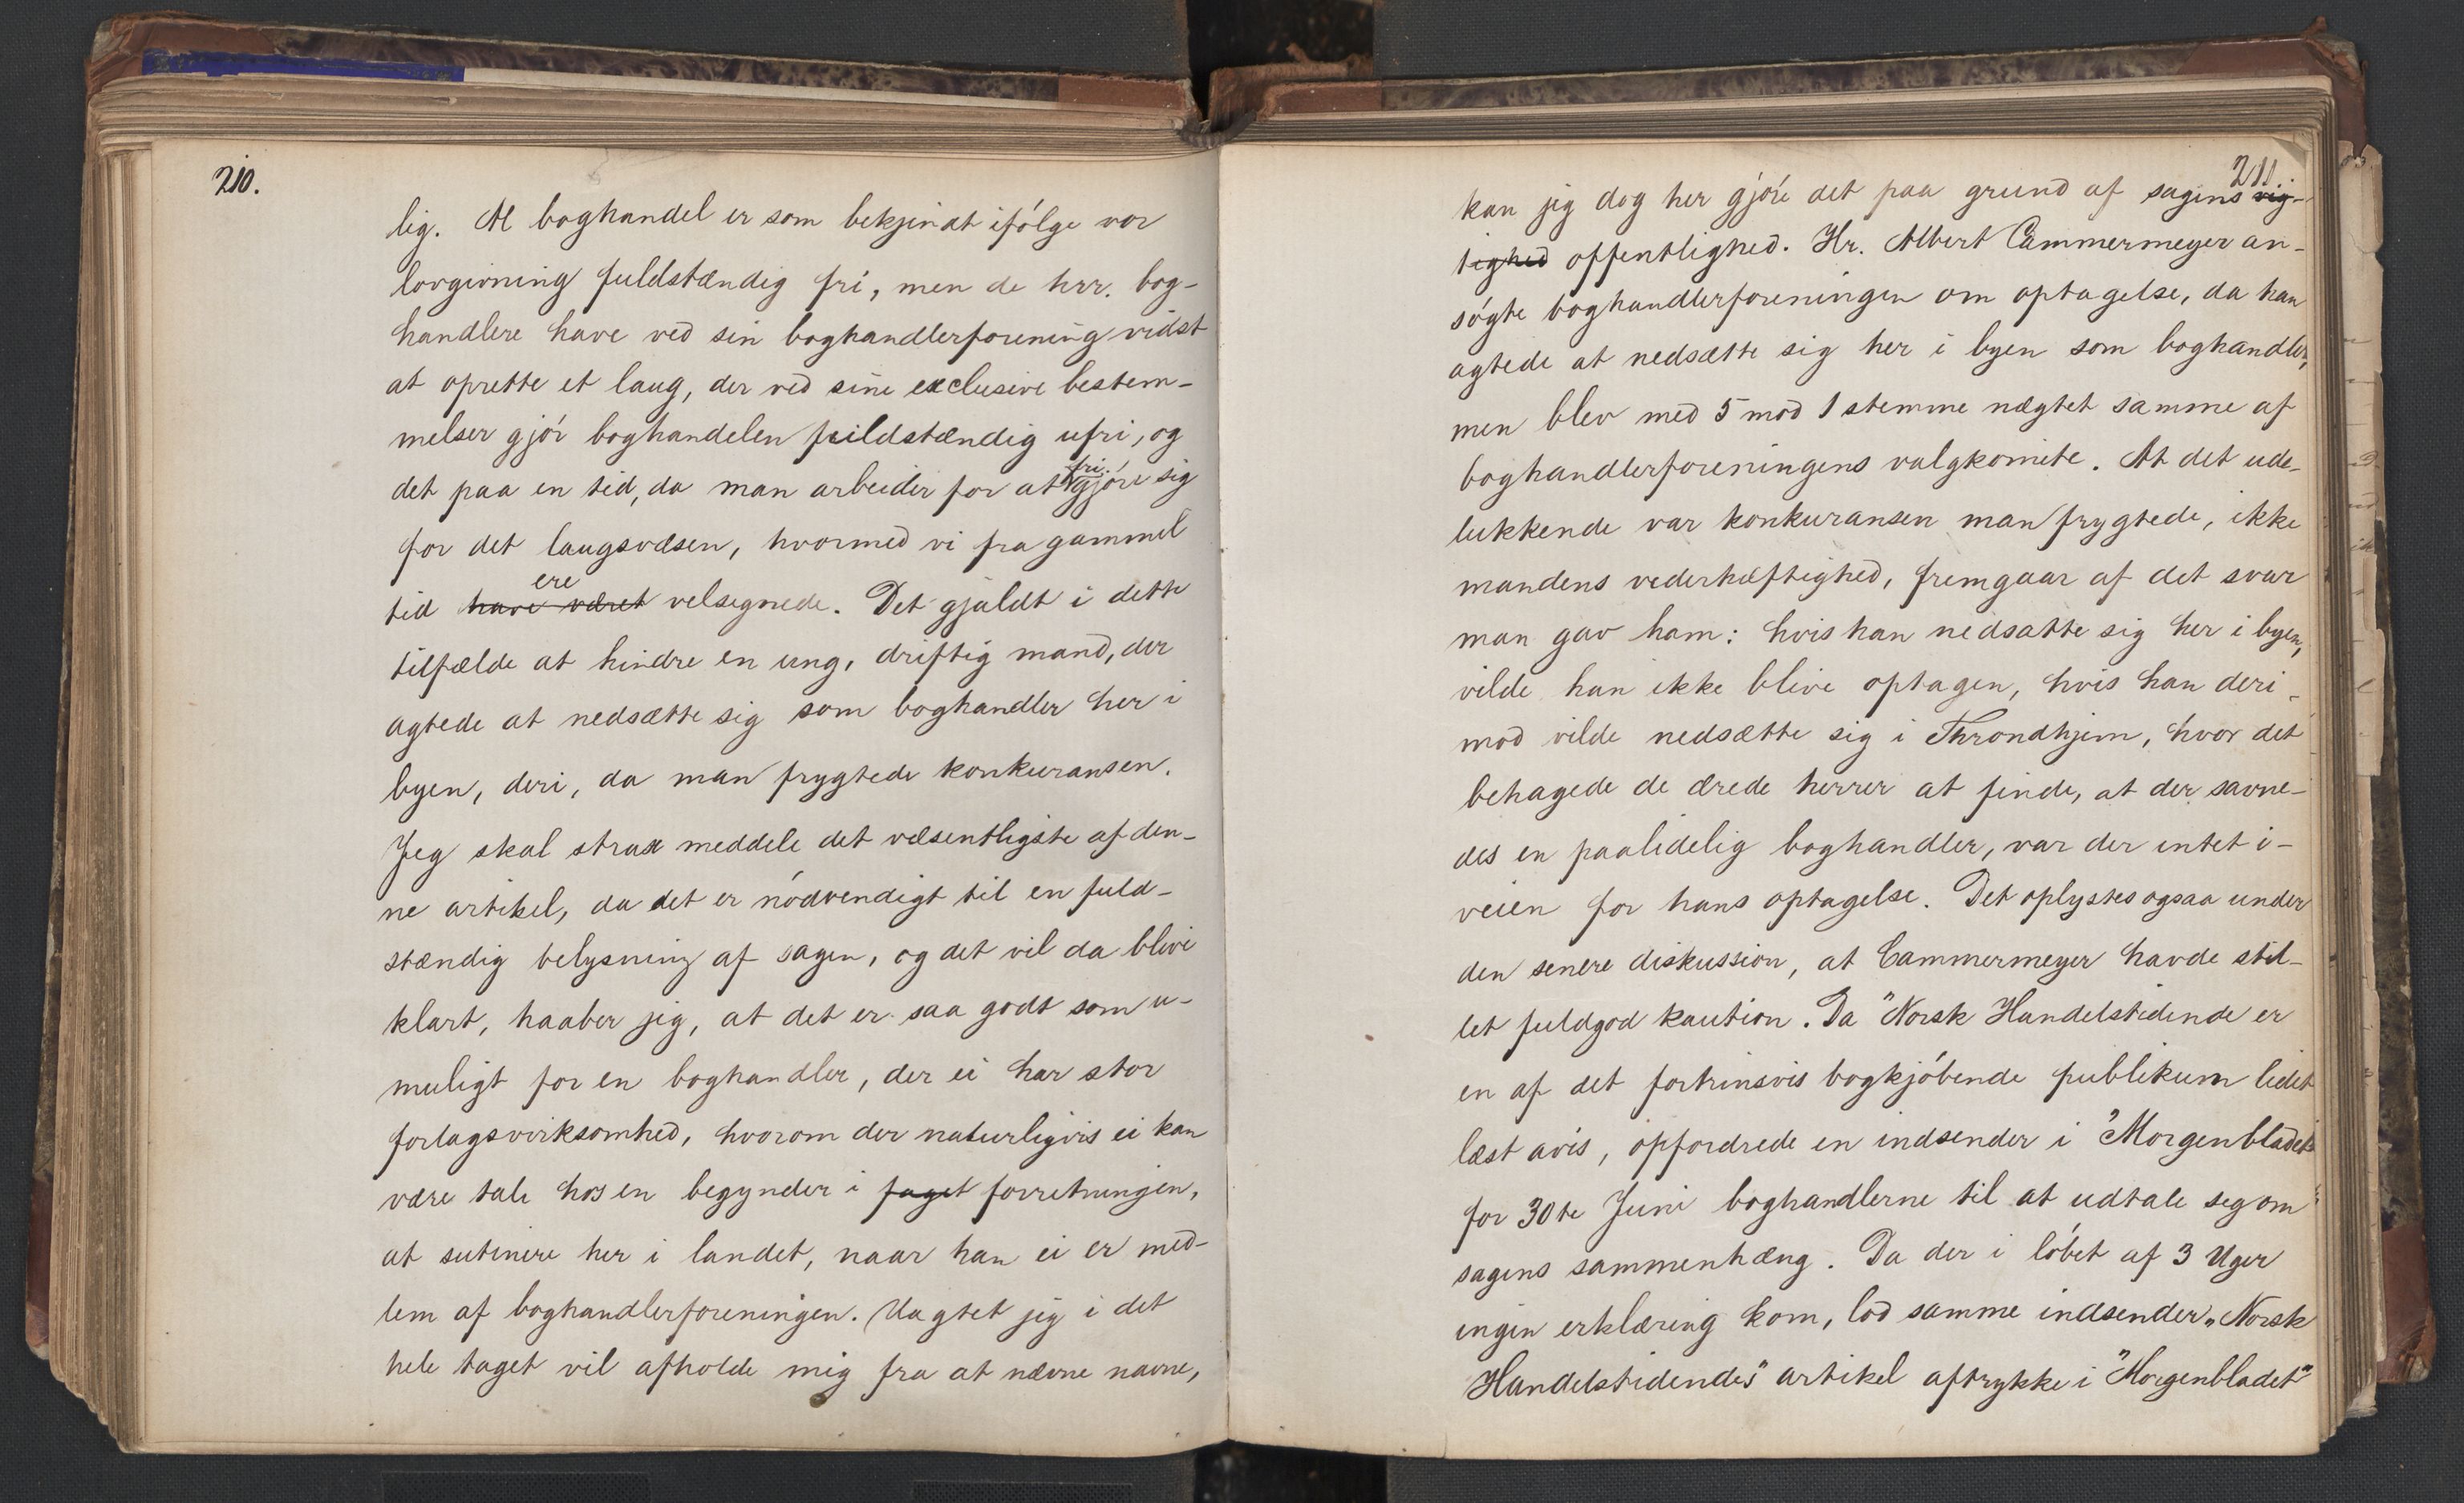 210.
lig. Al boghandel er som bekjendt ifólge vor
lovgivning fuldstændig fri, men de hrr. bog-
handlere have ved sin boghandlerforening vidst
at oprette et laug, der ved sine exclusive bestem-
melser gjór boghandelen fuldstændig ufri, og
det paa en tid, da man arbeider for at fri gjóre sig
for det laugsvæsen, hvormed vi fra gammel
tid have været ere velsignede. Det gjaldt i dette
tilfælde at hindre en ung, driftig mand, der
agtede at nedsætte sig som boghandler her i
byen, deri, da man frygtede konkuransen.
Jeg skal strax meddele det væsentligste af den-
ne artikel, da det er nódvendigt til en fuld-
stændig belysning af sagen, og det vil da blive
klart, haaber jeg, at det er saa godt som u-
muligt for en boghandler, der ei har stor
forlagsvirksomhed, hvorom der naturligvis ei kan
være tale hos en begynder i faget forretningen,
at sutinere her i landet, naar han ei er med-
lem af boghandlerforeningen. Uagtet jeg i det
hele taget vil afholde mig fra at nævne navne,
211
kan jeg dog her gjóre det paa grund af sagens vig-
tighed offentlighed. Hr. Albert Cammermeyer an-
sógte boghandlerforeningen om optagelse, da han
agtede at nedsætte sig her i byen som boghandler,
men blev med 5 mod 1 stemme nægtet samme af
boghandlerforeningens valgkomite. At det ude-
lukkende var konkuransen man frygtede, ikke
mandens vederhæftighed, fremgaar af det svar
man gav ham: hvis han nedsatte sig her i byen,
vilde han ikke blive optagen, hvis han deri-
mod vilde nedsætte sig i Throndhjem, hvor det
behagede de ærede herrer at finde, at der savne-
des en paalidelig boghandler, var der intet i-
veien for hans optagelse. Det oplystes ogsaa under
den senere diskussion, at Cammermeyer havde stil-
let fuldgod kaution. Da "Norsk Handelstidende er
en af det fortrinsvis bogkjóbende publikum lidet
læst avis, opfordrede en indsender i "Morgenbladet"
for 30te Juni boghandlerne til at udtale seg om
sagens sammenhæng. Da der i lóbet af 3 Uger
ingen erklæring kom, lod samme indsender „Norsk
Handelstidendes" artikel aftrykke i "Morgenbladet"